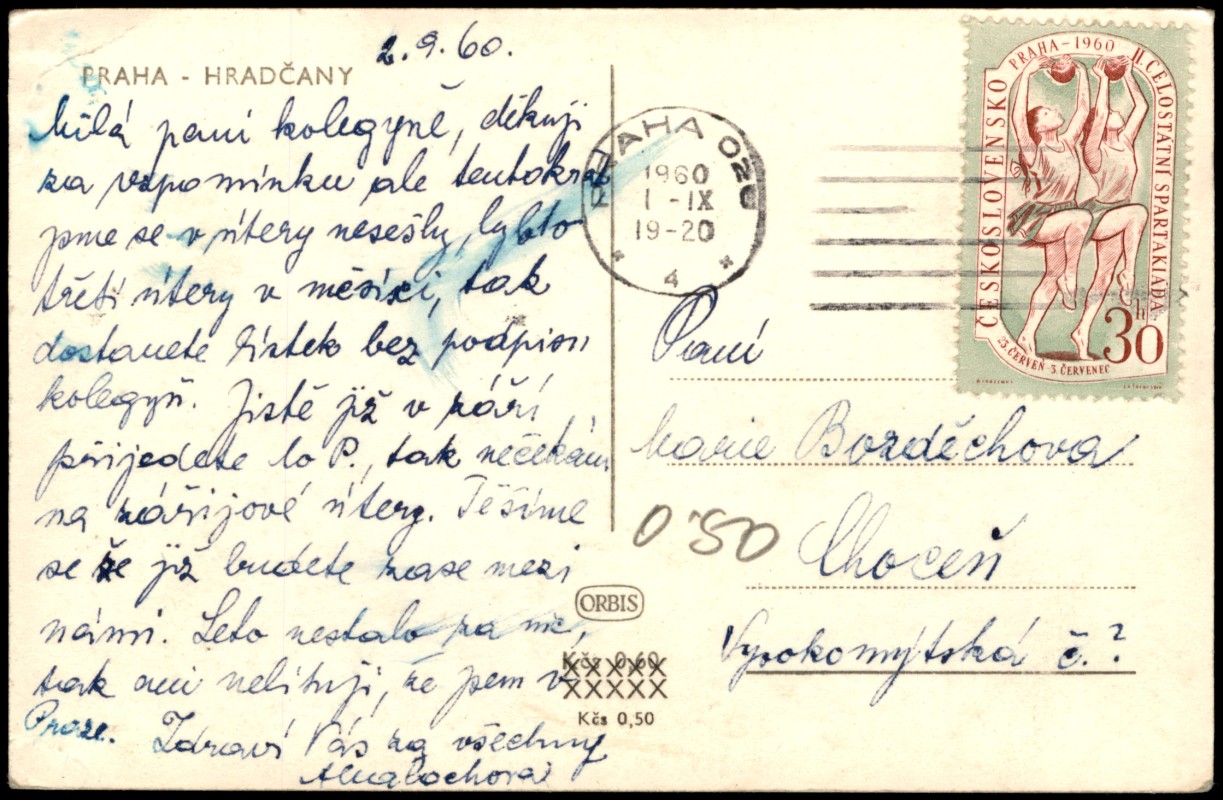 2.9.60.
PRAHA - HRADČANY
Milá paní kolegyně, děkuji
za vzpomínku ale tentokrát
jsme se v úterý nesešly, bylo to
třetí úterý v měsíci, tak
dostanete lístek bez podpisu
kolegyň. Jistě již v září
přijedete do P., tak nečekám
na zářijové úterý. Těšíme
se že již budete zase mezi
námi. Leto nestalo za nic,
tak ani nelituji, že jsem v
Praze. Zdraví Vás za všechny
PRAHA 025
1960
1-IX
19-20
* 4 *
ČESKOSLOVENSKO
PRAHA-1960
II. CELOSTÁTNÍ SPARTAKIÁDA
23. ČERVEN 3. ČERVENEC
30 h
Paní
Marie Bozděchova
Choceň
Vysokomýtská č.?
0'50
ORBIS
Kčs 0,60
XXXXX
XXXXX
Kčs 0,50